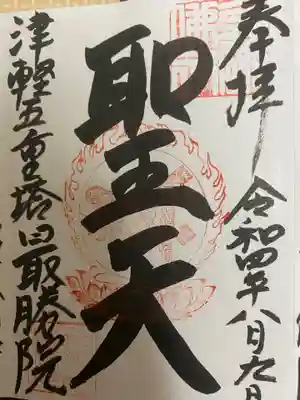 奉拝
令和四年八月九日
聖天
津軽五重塔最勝院